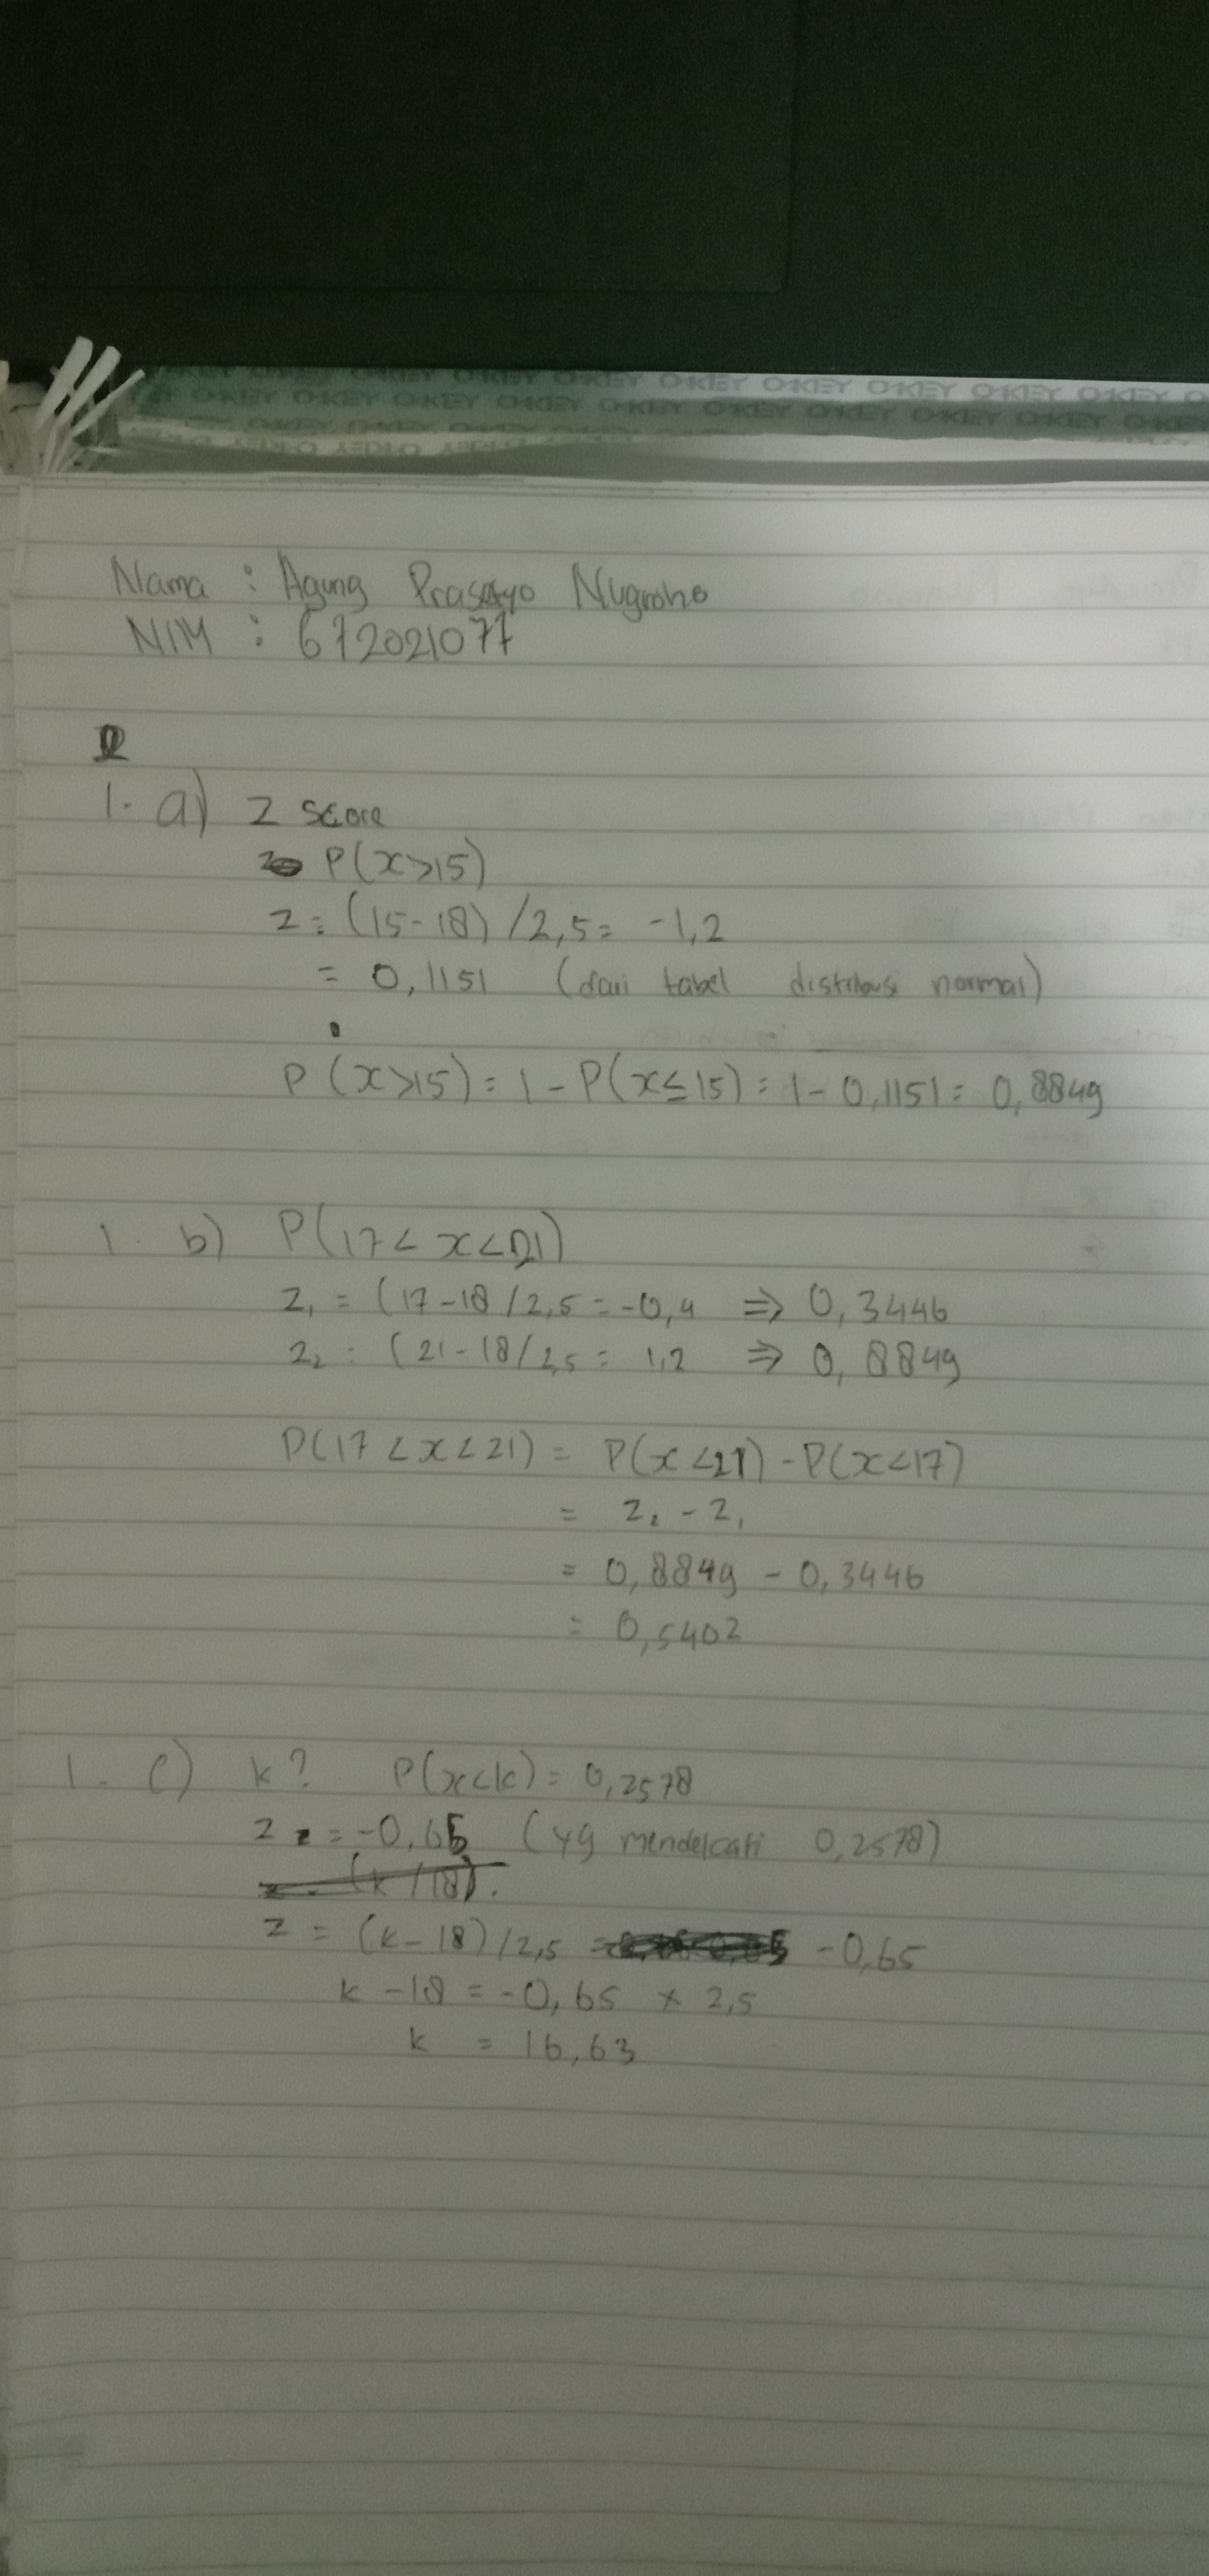 OKEY OKEY OKEY OKEY OKEY OKEY OKEY OKEY
OKEY OKEY OKEY OKEY OKEY OKEY OKEY OKEY OKEY OKEY
Nama : Agung Prasetyo Nugroho
NIM : 672021077
1. a) Z score
P(x>15)
z = (15-18) /2,5 = -1,2
= 0,1151 (dari tabel distribusi normal)
P (x>15) = 1 - P(x≤15) = 1 - 0,1151 = 0,8849
1. b) P(17< x<21)
z₁ = (17-18 /2,5 = -0,4 ⇒ 0,3446
z₂ = (21-18/2,5 = 1,2 ⇒ 0,8849
P(17 <x<21) = P(x<21) - P(x<17)
= z₂ - z₁
= 0,8849 - 0,3446
= 0,5402
1. c) k? P(x<k) = 0,2578
z = -0,65 (yg mendekati 0,2578)
(k/18).
z = (k-18)/2,5 = -0,65
k -18 = -0,65 x 2,5
k = 16,63